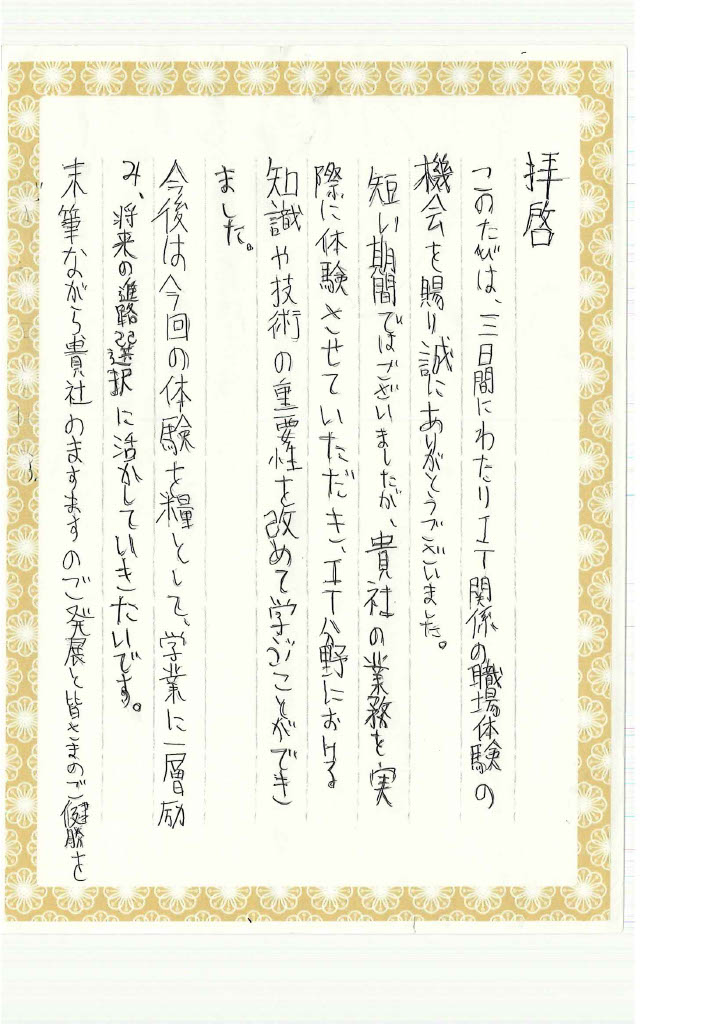 拝啓
このたびは、三日間にわたりIT関係の職場体験の
機会を賜り誠にありがとうございました。
短い期間ではございましたが、貴社の業務を実
際に体験させていただき、IT分野における
知識や技術の重要性を改めて学ぶことができ
ました。
今後は今回の体験を糧として、学業に一層励
み、将来の進路選択に活かしていきたいです。
末筆ながら貴社のますますのご発展と皆さまのご健勝を